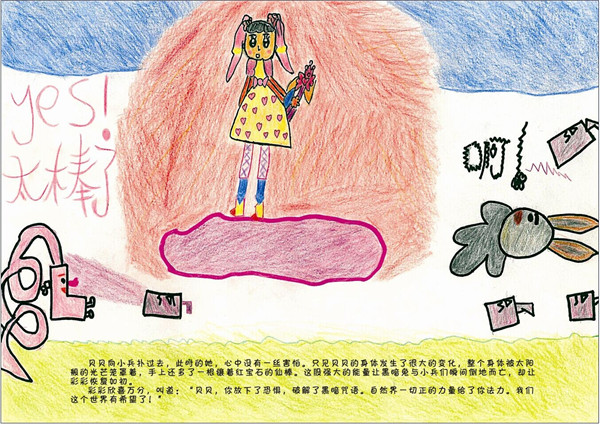 yes!
太棒了
啊!
SD
SD
SD
SD
贝贝向小兵扑过去，此时的她，心中没有一丝害怕。只见贝贝的身体发生了很大的变化，整个身体被太阳
般的光芒笼罩着，手上还多了一根镶着红宝石的仙棒。这股强大的能量让黑暗兔与小兵们瞬间倒地而亡，却让
彩彩恢复如初。
彩彩欣喜万分，叫道：“贝贝，你放下了恐惧，破解了黑暗咒语。自然界一切正的力量给了你法力。我们
这个世界有希望了！”